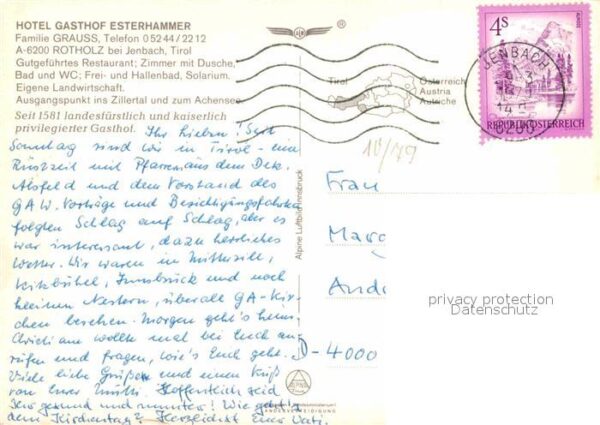 HOTEL GASTHOF ESTERHAMMER
Familie GRAUSS, Telefon 0 52 44 / 22 12
A-6200 ROTHOLZ bei Jenbach, Tirol
Gutgeführtes Restaurant; Zimmer mit Dusche,
Bad und WC; Frei- und Hallenbad, Solarium.
Eigene Landwirtschaft.
Ausgangspunkt ins Zillertal und zum Achensee
Seit 1581 landesfürstlich und kaiserlich
privilegierter Gasthof.
®
Tirol
Österreich
Austria
Autriche
4S
REPUBLIK ÖSTERREICH
JENBACH
6200
10/79
Ihr Lieben! Seit
Sonntag sind wir in Tirol - eine
Rüstzeit mit Pfarrern aus dem Dek.
Alsfeld und dem Vorstand des
GAW. Vorträge und Besichtigungsfahrten
folgten Schlag auf Schlag, aber es
war interessant, dazu herrliches
Wetter. Wir waren in Mittersill,
Kitzbühel, Innsbruck und noch
kleinen Nestern, überall GA-Kir-
chen besehen. Morgen geht's heim.
Christiane wollte mal bei Euch an-
rufen und fragen, wie's Euch geht.
Viele liebe Grüße und einen Kuß
von Eurer Mutti. Hoffentlich seid
Ihr gesund und munter! Wie geht's
dem Kirchentag? Herzlichst Euer Vati.
Alpine Luftbild Innsbruck
Frau
Marg
Ande
D-4000
privacy protection
Datenschutz